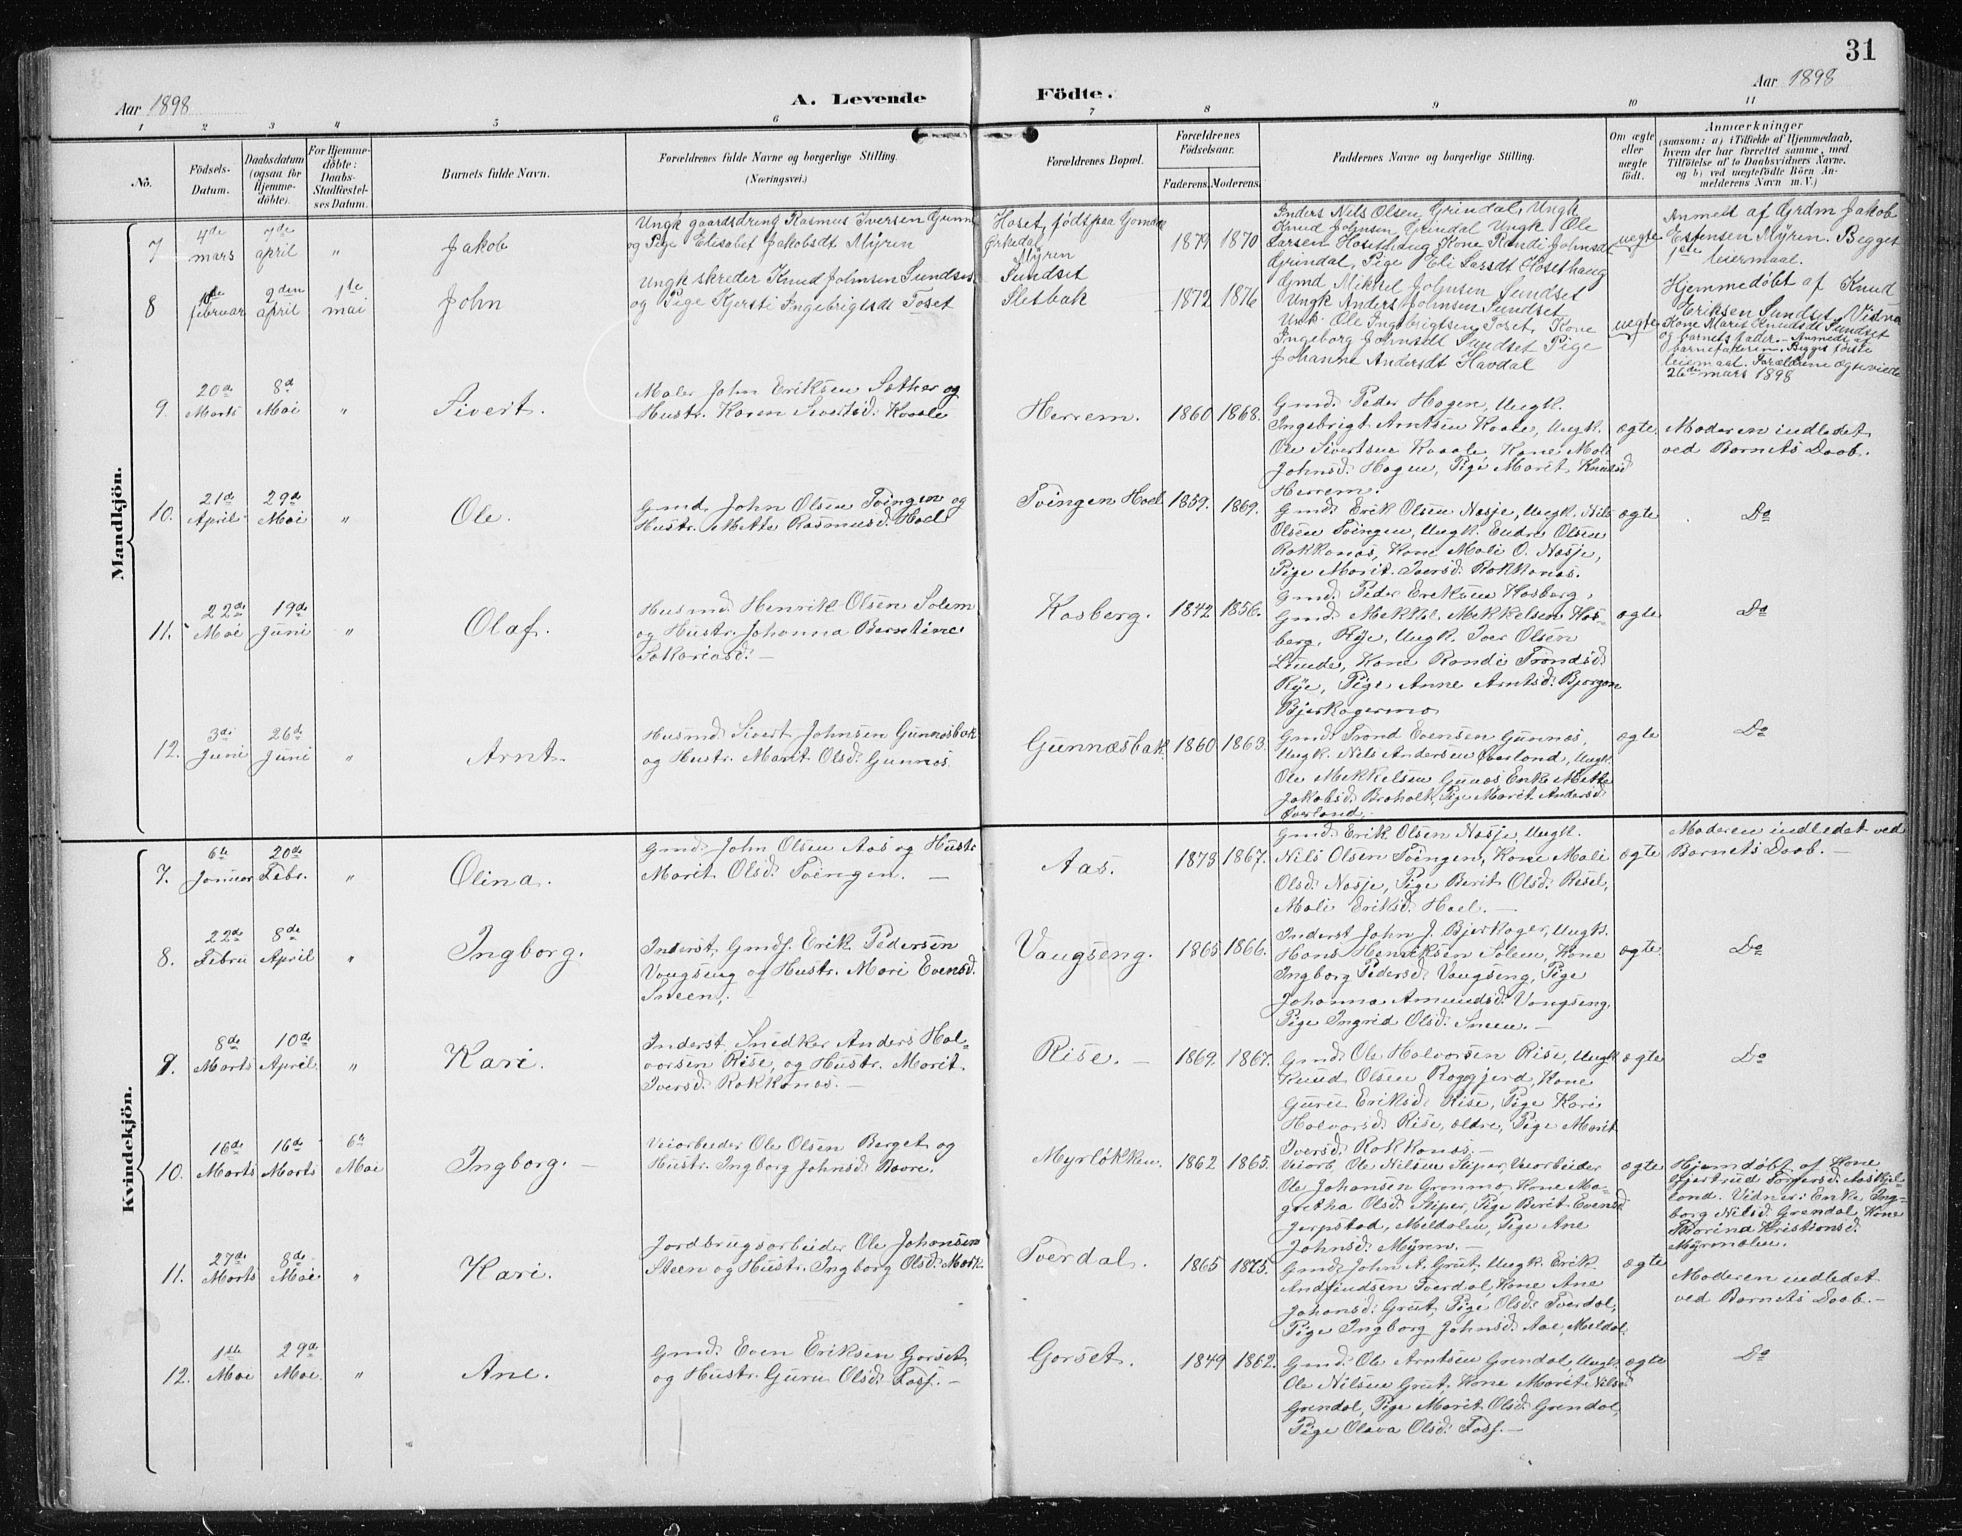 31
Aar 1898
A. Levende
Födte.
Aar 1898
1 2 3 4 5 6 7 8 9 10 11
No.
Födsels-
Datum.
Daabsdatum
(ogsaa for
Hjemme-
döbte).
For Hjemme-
döbte:
Daabs-
Stadfæstel-
ses Datum.
Barnets fulde Navn.
Forældrenes fulde Navne og borgerlige Stilling.
(Næringsvei.)
Forældrenes Bopæl.
Forældrenes
Födselsaar.
Faderens. Moderens.
Faddernes Navne og borgerlige Stilling.
Om ægte
eller
uægte
födt.
Anmærkninger
(saasom: a) i Tilfælde af Hjemmedaab,
hvem der har forrettet samme, med
Tilföielse af to Daabsvidners Navne,
og b) ved uægtefödte Börn An-
melderens Navn m. V.)
Mandkjön.
7
4de
mars
7de
april
"
Jakob
Ungk gaardsdreng Rasmus Iversen Gunnes
og Pige Elisabet Jakobsdt Myren
Hoset, födt paa
Orkedal
Myren
1879 1870
Inders Nils Olsen Grindal, Ungk
Knud Johnsen Grindal Ungk Ole
Larsen Hosethaug Kone Randi Johnsdt
Grindal, Pige Eli Larsdt Hosethaug
uegte
Anmelt af Grdm Jakob
Estensen Myren. Begges
1ste leiermaal.
8
februar
2den
april
1ste
mai
John
Ungk skreder Knud Johnsen Sundset
og Pige Kjersti Ingebrigtsdt Toset
Sundset
Sletbak
1872 1876
Gmd Mikkel Johnsen Sundset
Ungk Anders Johnsen Sundset
Ungk Ole Ingebrigtsen Toset, Kone
Ingeborg Johnsdt Sundset Pige
Johanne Andersdt Havdal
uegte
Hjemmedøbt af Knud
Eriksen Sundset, Vidne
Kone Marit Knudsdt Sundset
og barnets fader – Anmelt af
barnefaderen. Begges første
leiermaal. Forældrene egteviede
26de mars 1898
9.
20de
Marts
8d
Mai
"
Sivert.
Maler John Eriksen Sæther og
Hustr. Karen Sivertsd: Kvaale
Herrem.
1860 1868.
Gmd: Peder Hagen, Ungk.
Ingebrigt Arntsen Kvale, Ungk.
Ole Sivertsen Kvaale, Kone Mali
Johnsd: Hagen, Pige Marit Knudsd
Herrem.
ægte.
Moderen indledet
ved Barnets Daab.
10.
21de
April
29de
Mai
"
Ole.
Gmd. John Olsen Tvingen og
Hustr. Mette Rasmusd: Hoel
Tvingen Hoel
1859. 1869.
Gmd: Erik Olsen Nasje, Ungk. Nils
Olsen Tvingen, Ungk. Endre Olsen
Rokkones, Kone Mali O. Nasje,
Pige Marit Iversd: Rokkones.
ægte
Do
11.
22de
Mai
19de
Juni
"
Olaf.
Husmd: Henrik Olsen Solem
og Hustr. Johanna Berntine
Sakariasd: –
Kosberg.
1842 1856.
Gmd: Peder Eriksen Kosberg,
Gmd: Mekkel Mekkelsen Kos-
berg, Rye, Ungk. Iver Olsen
Lunde, Kone Randi Trondsd:
Rye, Pige Anne Arntsd: Bjørgen
Bjerkagermo
ægte
Do
12.
3die
Juni
26de
Juni
"
Arnt.
Husmd: Sivert Johnsen Gunnesbak
og Hustr. Marit Olsd: Gunnes.
Gunnæsbak
1860 1863.
Gmd: Trond Evensen Gunnes,
Ungk. Nils Andersen Øverland, Ungk.
Ole Mekkelsen Gunæs, Enke Mette
Jakobsd: Braholt, Pige Marit Andersd:
Øverland.
ægte
Do
Kvindekjön.
7.
6te
Januar
20de
Febr.
"
Olina.
Gmd: John Olsen Aas og Hustr.
Marit Olsd: Tvingen. –
Aas.
1873 1867.
Gmd: Erik Olsen Nasje Ungk.
Nils Olsen Tvingen, Kone Mali
Olsd: Nasje, Pige Berit Olsd: Risel,
Mali Eriksd: Hoel. –
ægte
Moderen indledet ved
Barnets Daab. –
8.
22de
Febru
8de
April
"
Ingborg.
Inderst, Gmds. Erik Pedersen
Vougseng og Hustr. Mari Evensd.
Sneen,
Vaugseng.
1865 1866.
Inderst John J. Bjerkager, Ungk.
Hans Henriksen Solem, Kone
Ingborg Pedersd: Vaugseng, Pige
Johanna Amundsd: Vougseng,
Pige Ingrid Olsd: Sneen. –
ægte.
Do
9.
8de
Marts
10de
April
"
Kari.
Inderst, Snedker Anders Hal-
vorsen Rise, og Hustr. Marit
Iversd: Rokkones. –
Rise. –
1869. 1867.
Gmd: Ole Halvorsen Rise, Ungk
Knud Olsen Roggjerd, Kone
Guru Eriksd: Rise, Pige Kari
Halvorsd: Rise, ældre, Pige Marit
Iversd: Rokkones. –
ægte
Do
10.
16de
Marts
16de
Marts
6te
Mai
Ingborg. –
Veiarbeider Ole Olsen Berget og
Hustr. Ingborg Johnsd:
Myrløkken.
1862 1865.
Veiarb. Ole Nilsen Stiper, Veiarbeider
Ole Johansen Grønmo, Kone Ma-
gretha Olsd: Stiper, Pige Berit Evensd
Jerpstad, Meldalen, Pige Ane
Johnsd: Myren. –
ægte
Hjemdøbt af Kone
Gjertrud Torgersd: Aaskjel-
land. Vidner: Enke Ing-
borg Nilsd: Grendal, Kone
Thorina Kristiansd:
Myrmalen.
11.
27de
Marts
8de
Mai
"
Kari.
Jordbrugsarbeider Ole Johansen
Steen og Hustr. Ingborg Olsd: Mork.
Tverdal.
1865 1875.
Gmd: John A. Grut, Ungk. Erik
Andfindsen Tverdal, Kone Ane
Johansd: Grut, Pige Olsd: Tverdal,
Pige Ingborg Johnsd: Aae, Meldal
ægte
Moderen indledet
ved Barnets Daab. –
12.
1ste
Mai
29de
Mai.
"
Ane.
Gmd: Even Eriksen Gorset
og Hustr. Guru Olsd: Foss. –
Gorset.
1849 1862.
Gmd: Ole Arntsen Grendal, Ungk.
Ole Nilsen Grut, Kone Marit Nilsd
Grendal, Pige Marit Olsd: Grendal,
Pige Olava Olsd: Foss. –
ægte
Do